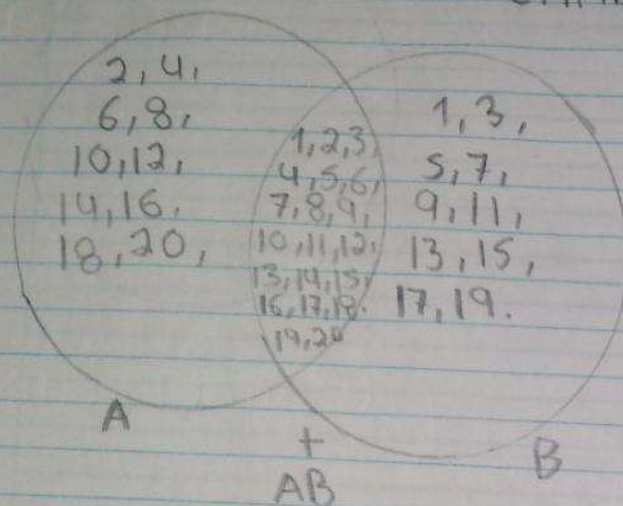 2, 4,
6, 8,
10, 12,
14, 16,
18, 20,
1, 2, 3,
4, 5, 6,
7, 8, 9,
10, 11, 12,
13, 14, 15,
16, 17, 18.
19, 20
1, 3,
5, 7,
9, 11,
13, 15,
17, 19.
A
+
AB
B